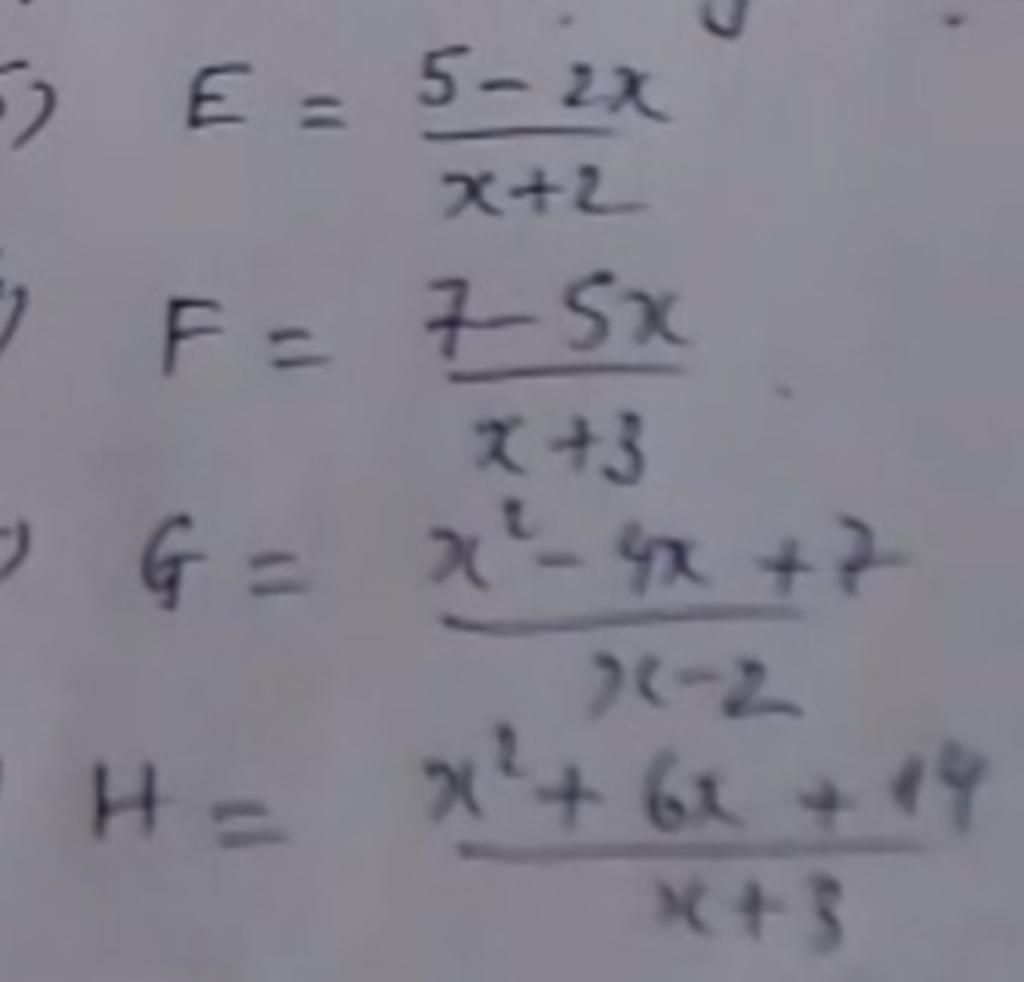 5) E = (5 - 2x)/(x + 2)
F = (7 - 5x)/(x + 3)
G = (x² - 4x + 7)/(x - 2)
H = (x² + 6x + 14)/(x + 3)